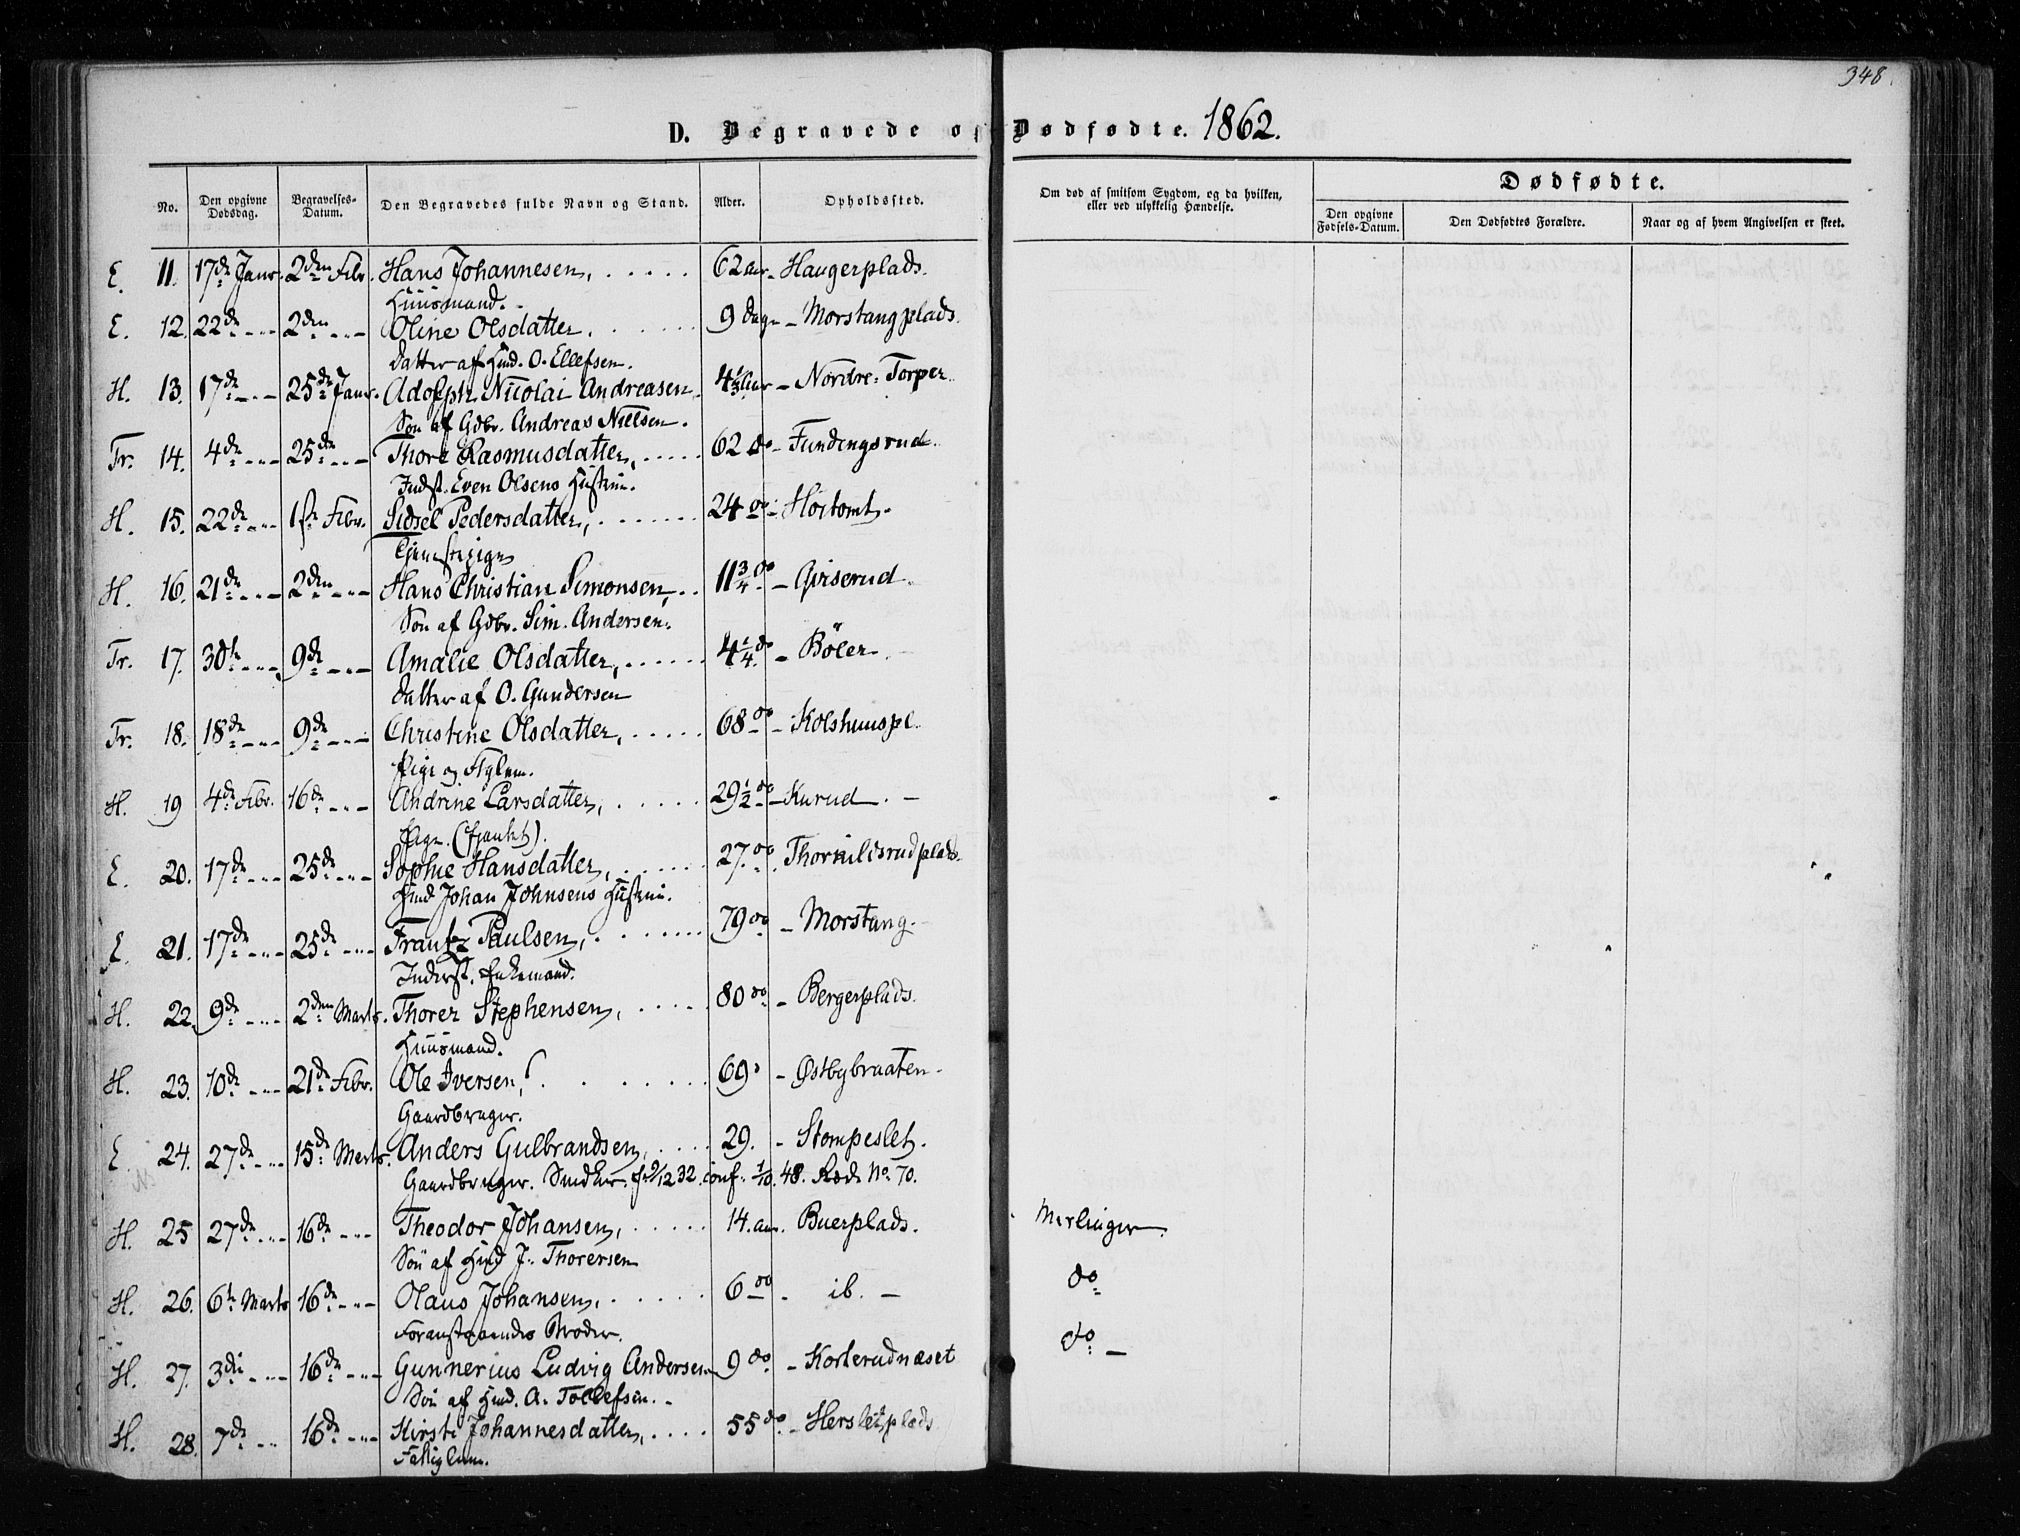 348
D. Begravede og Dødfødte. 1862.
No. Den opgivne Dødsdag. Begravelses-Datum. Den Begravedes fulde Navn og Stand. Alder. Opholdssted. Om død af smitsom Sygdom, og da hvilken, eller ved ulykkelig Hændelse. Dødfødte.
Den opgivne Fødsels-Datum. Den Dødfødtes Forældre. Naar og af hvem Angivelsen er skeet.
E. 11. 17de Janr. 2den Febr. Hans Johannesen, 62 aar - Haugerplads.
Huusmand.
E. 12. 22de 2den Oline Olsdatter. 9 dage - Morstangplads.
Datter af Hmd. O. Ellefsen.
H. 13. 17de 25de Janr. Adolph Nicolai Andreasen, 4 1/3 Aar - Nordre-Torper.
Søn af Gdbr. Andreas Nielsen.
Fr. 14. 4de 25de Thore Rasmusdatter, 62 do - Fundingsrud.
Indst. Even Olsens Hustru.
H. 15. 22de 1ste Febr. Sidsel Pedersdatter, 24 do - Hoitomt.
Tjenestepige
H. 16. 21de 2den Hans Christian Simonsen, 11 3/4 do - Qviserud.
Søn af Gdbr. Sim. Andersen.
Fr. 17. 30te 9de Amalie Olsdatter, 4 1/4 do - Böler
Datter af O. Gundersen
Fr. 18. 18de 9de Christine Olsdatter, 68 do - Kolshuuspl.
Pige og Ftglem.
H. 19 4de Febr. 16de Andrine Larsdatter, 29 1/2 do - Kurud.
Pige.
E. 20. 17de 25de Sophie Hansdatter, 27. do Thorkildsrudplads.
Hmd Johan Johnsens Hustru.
E. 21. 17de 25de Frantz Paulsen, 79 do - Morstang.
Inderst. Enkemand.
H. 22. 9de 2den Marts. Thorer Stephensen, 80 do - Bergerplads.
Huusmand.
H. 23. 10de 21de Febr. Ole Iversen, 69 - Østbybraaten
Gaardbruger.
E. 24. 27de 15de Marts. Anders Gulbrandsen, 29. - Stompeslet.
Gaardbruger. 9/12 32. conf. 1/10. 48. No. 70.
H. 25 27de 16de Theodor Johansen, 14. aar. Buerplads. Meslinger.
Søn af Hmd J. Thorersen
H. 26. 6te Marts 16de Olaus Johansen, 6 do - ib. - do
Foranstaaendes Broder.
H. 27. 3die 16de Gunnerius Ludvig Andersen 9 do. - Korterudnæset do. -
Søn af Hmd. A. Tollefsen.
H. 28. 7de 16de Kirsti Johannesdatter, 55 do. - Hersletplads
Fattiglem.